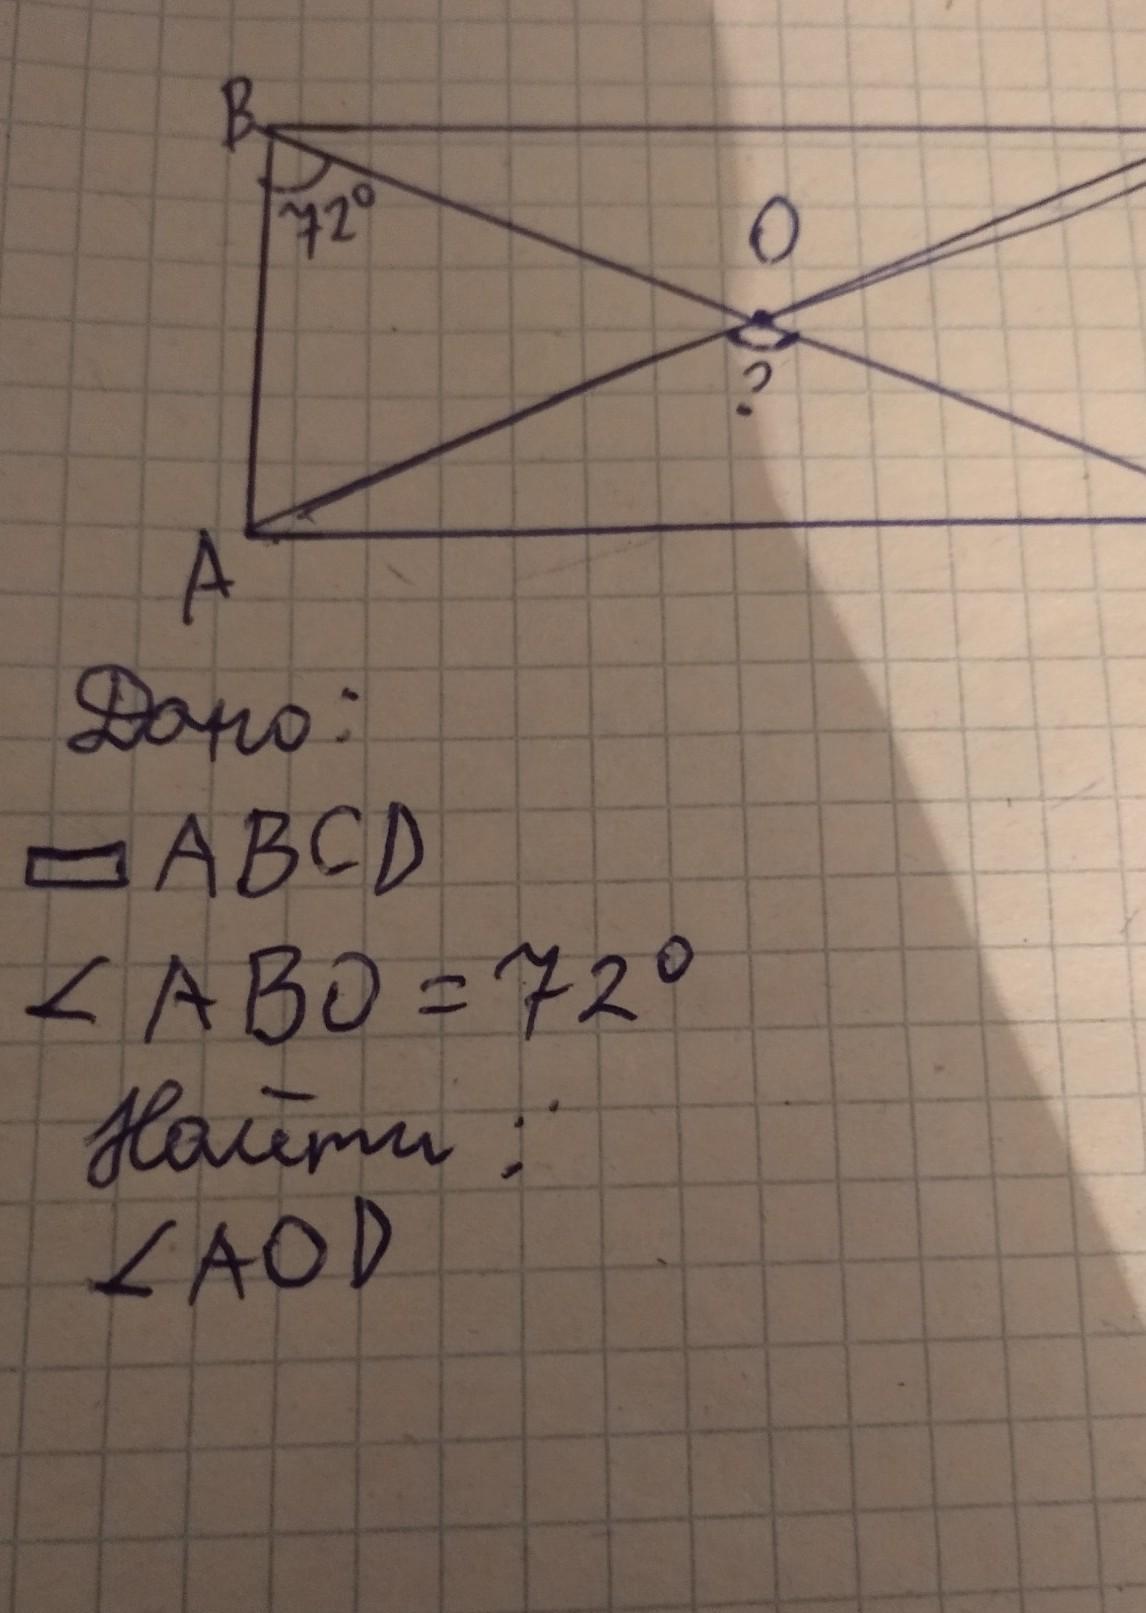 B
72°
O
?
A
Дано:
▭ ABCD
∠ ABO = 72°
Найти :
∠ AOD